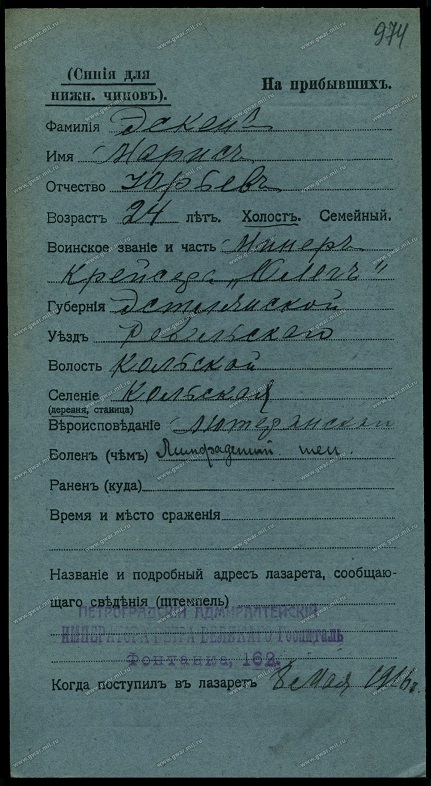 974
(Синія для
нижн. чиновъ).
На прибывшихъ.
Фамилія Эскенъ
Имя Марисъ
Отчество Юрьевъ
Возрастъ 24 лѣтъ. Холостъ. Семейный.
Воинское званіе и часть Минеръ
крейсера „Олегъ"
Губернія Эстляндской
Уѣздъ Ревельскаго
Волость Кольской
Селеніе Кольская
(деревня, станица)
Вѣроисповѣданіе Лютеранскаго
Боленъ (чѣмъ) Лимфаденитъ шеи.
Раненъ (куда)
Время и мѣсто сраженія
Названіе и подробный адресъ лазарета, сообщаю-
щаго свѣдѣнія (штемпель)
ПЕТРОГРАДСКІЙ АДМИРАЛТЕЙСКІЙ
ИМПЕРАТОРА ПЕТРА ВЕЛИКАГО Госпиталь
Фонтанка, 162.
Когда поступилъ въ лазаретъ 8 мая 1916 г.